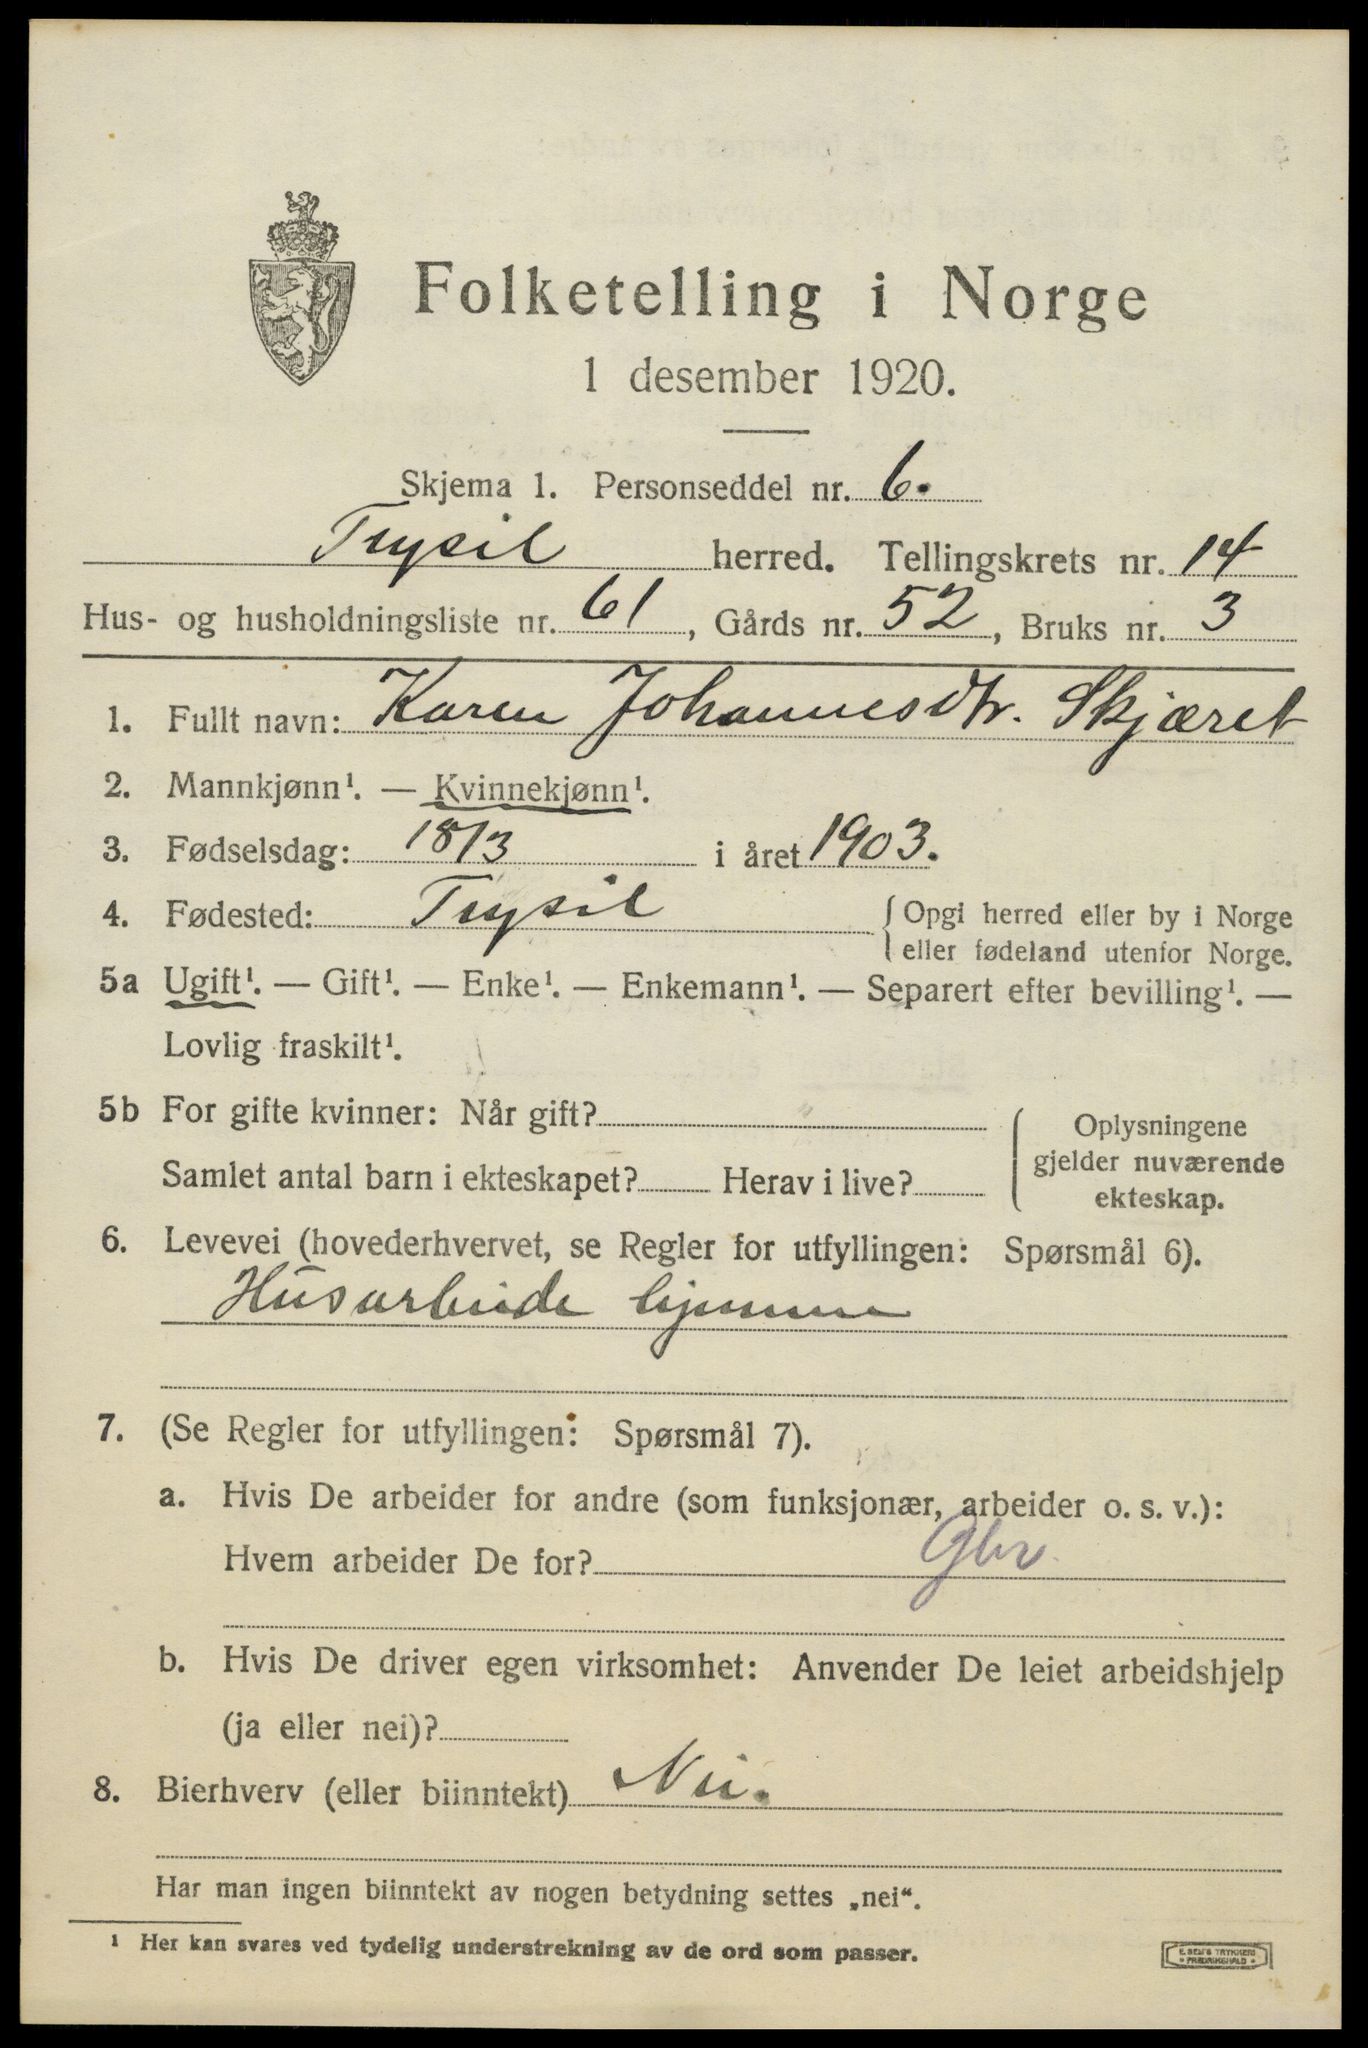 Folketelling i Norge
1 desember 1920.
Skjema 1. Personseddel nr. 6.
Trysil herred. Tellingskrets nr. 14
Hus- og husholdningsliste nr. 61, Gårds nr. 52, Bruks nr. 3
1. Fullt navn: Karen Johannesdtr. Skjæret
2. Mannkjønn¹. — Kvinnekjønn¹.
3. Fødselsdag: 18/3 i året 1903.
4. Fødested: Trysil { Opgi herred eller by i Norge
eller fødeland utenfor Norge.
5a Ugift¹. — Gift¹. — Enke¹. — Enkemann¹. — Separert efter bevilling¹. —
Lovlig fraskilt¹.
5b For gifte kvinner: Når gift?
Samlet antal barn i ekteskapet? Herav i live?
Oplysningene
gjelder nuværende
ekteskap.
6. Levevei (hovederhvervet, se Regler for utfyllingen: Spørsmål 6).
Husarbeide hjemme
7. (Se Regler for utfyllingen: Spørsmål 7).
a. Hvis De arbeider for andre (som funksjonær, arbeider o. s. v.):
Hvem arbeider De for? Gbr.
b. Hvis De driver egen virksomhet: Anvender De leiet arbeidshjelp
(ja eller nei)?
8. Bierhverv (eller biinntekt) Nei.
Har man ingen biinntekt av nogen betydning settes „nei“.
¹ Her kan svares ved tydelig understrekning av de ord som passer.
E. SEM'S TRYKKERI
• FREDRIKSHALD •